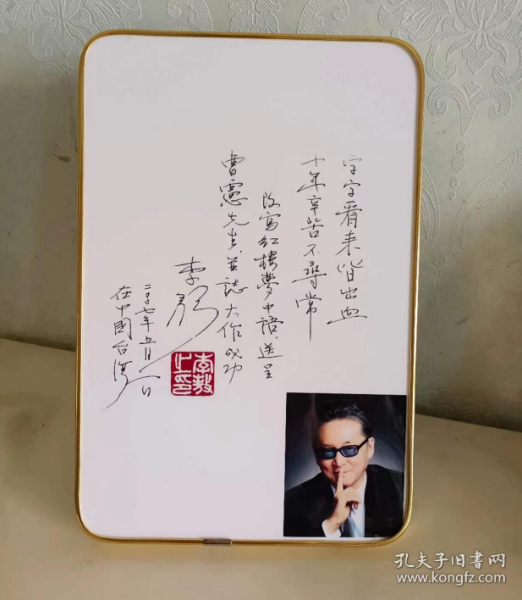 字字看来皆出血
十年辛苦不尋常
改寫紅樓夢中語、送呈
曹憲先生、並誌大作成功
李敖
二〇〇七年五月一日
在中國台灣
李敖之印
孔夫子旧书网
www.kongfz.com